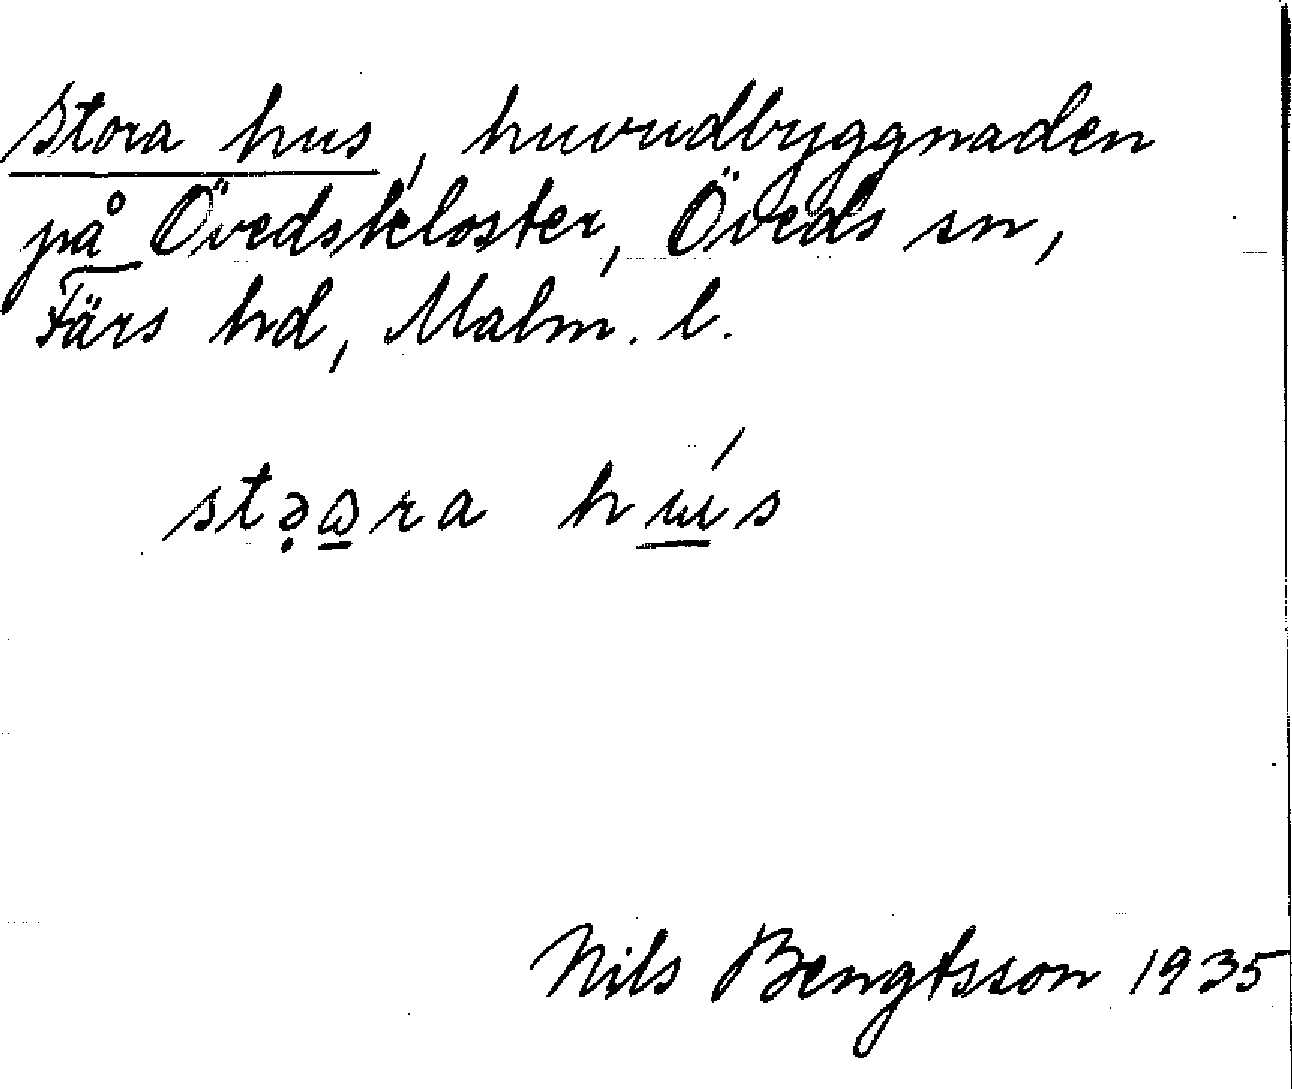 Stora hus, huvudbyggnaden
på Övedskloster, Öveds sn,
Färs hd, Malm. l.
stə̣ωra hús
Nils Bengtsson 1935